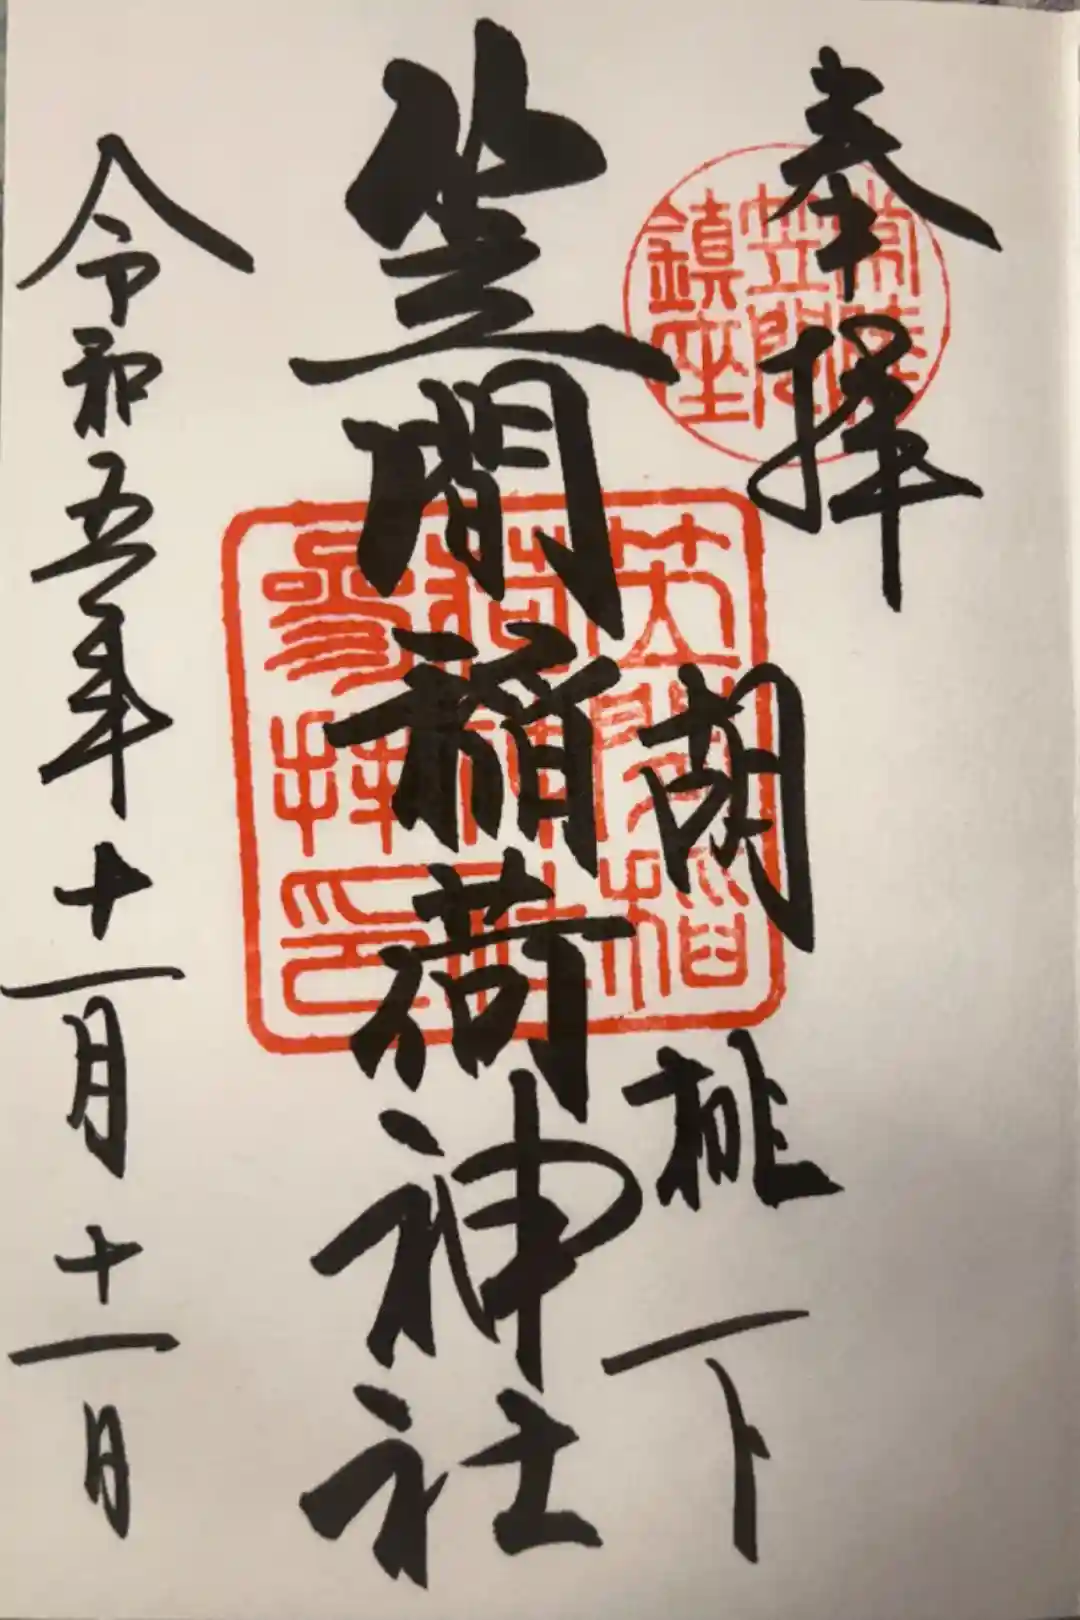 奉拝
胡桃下
常陸
笠間
鎮座
笠間稲荷神社
笠間稲
荷神社
參拝印
令和五年十一月十一日